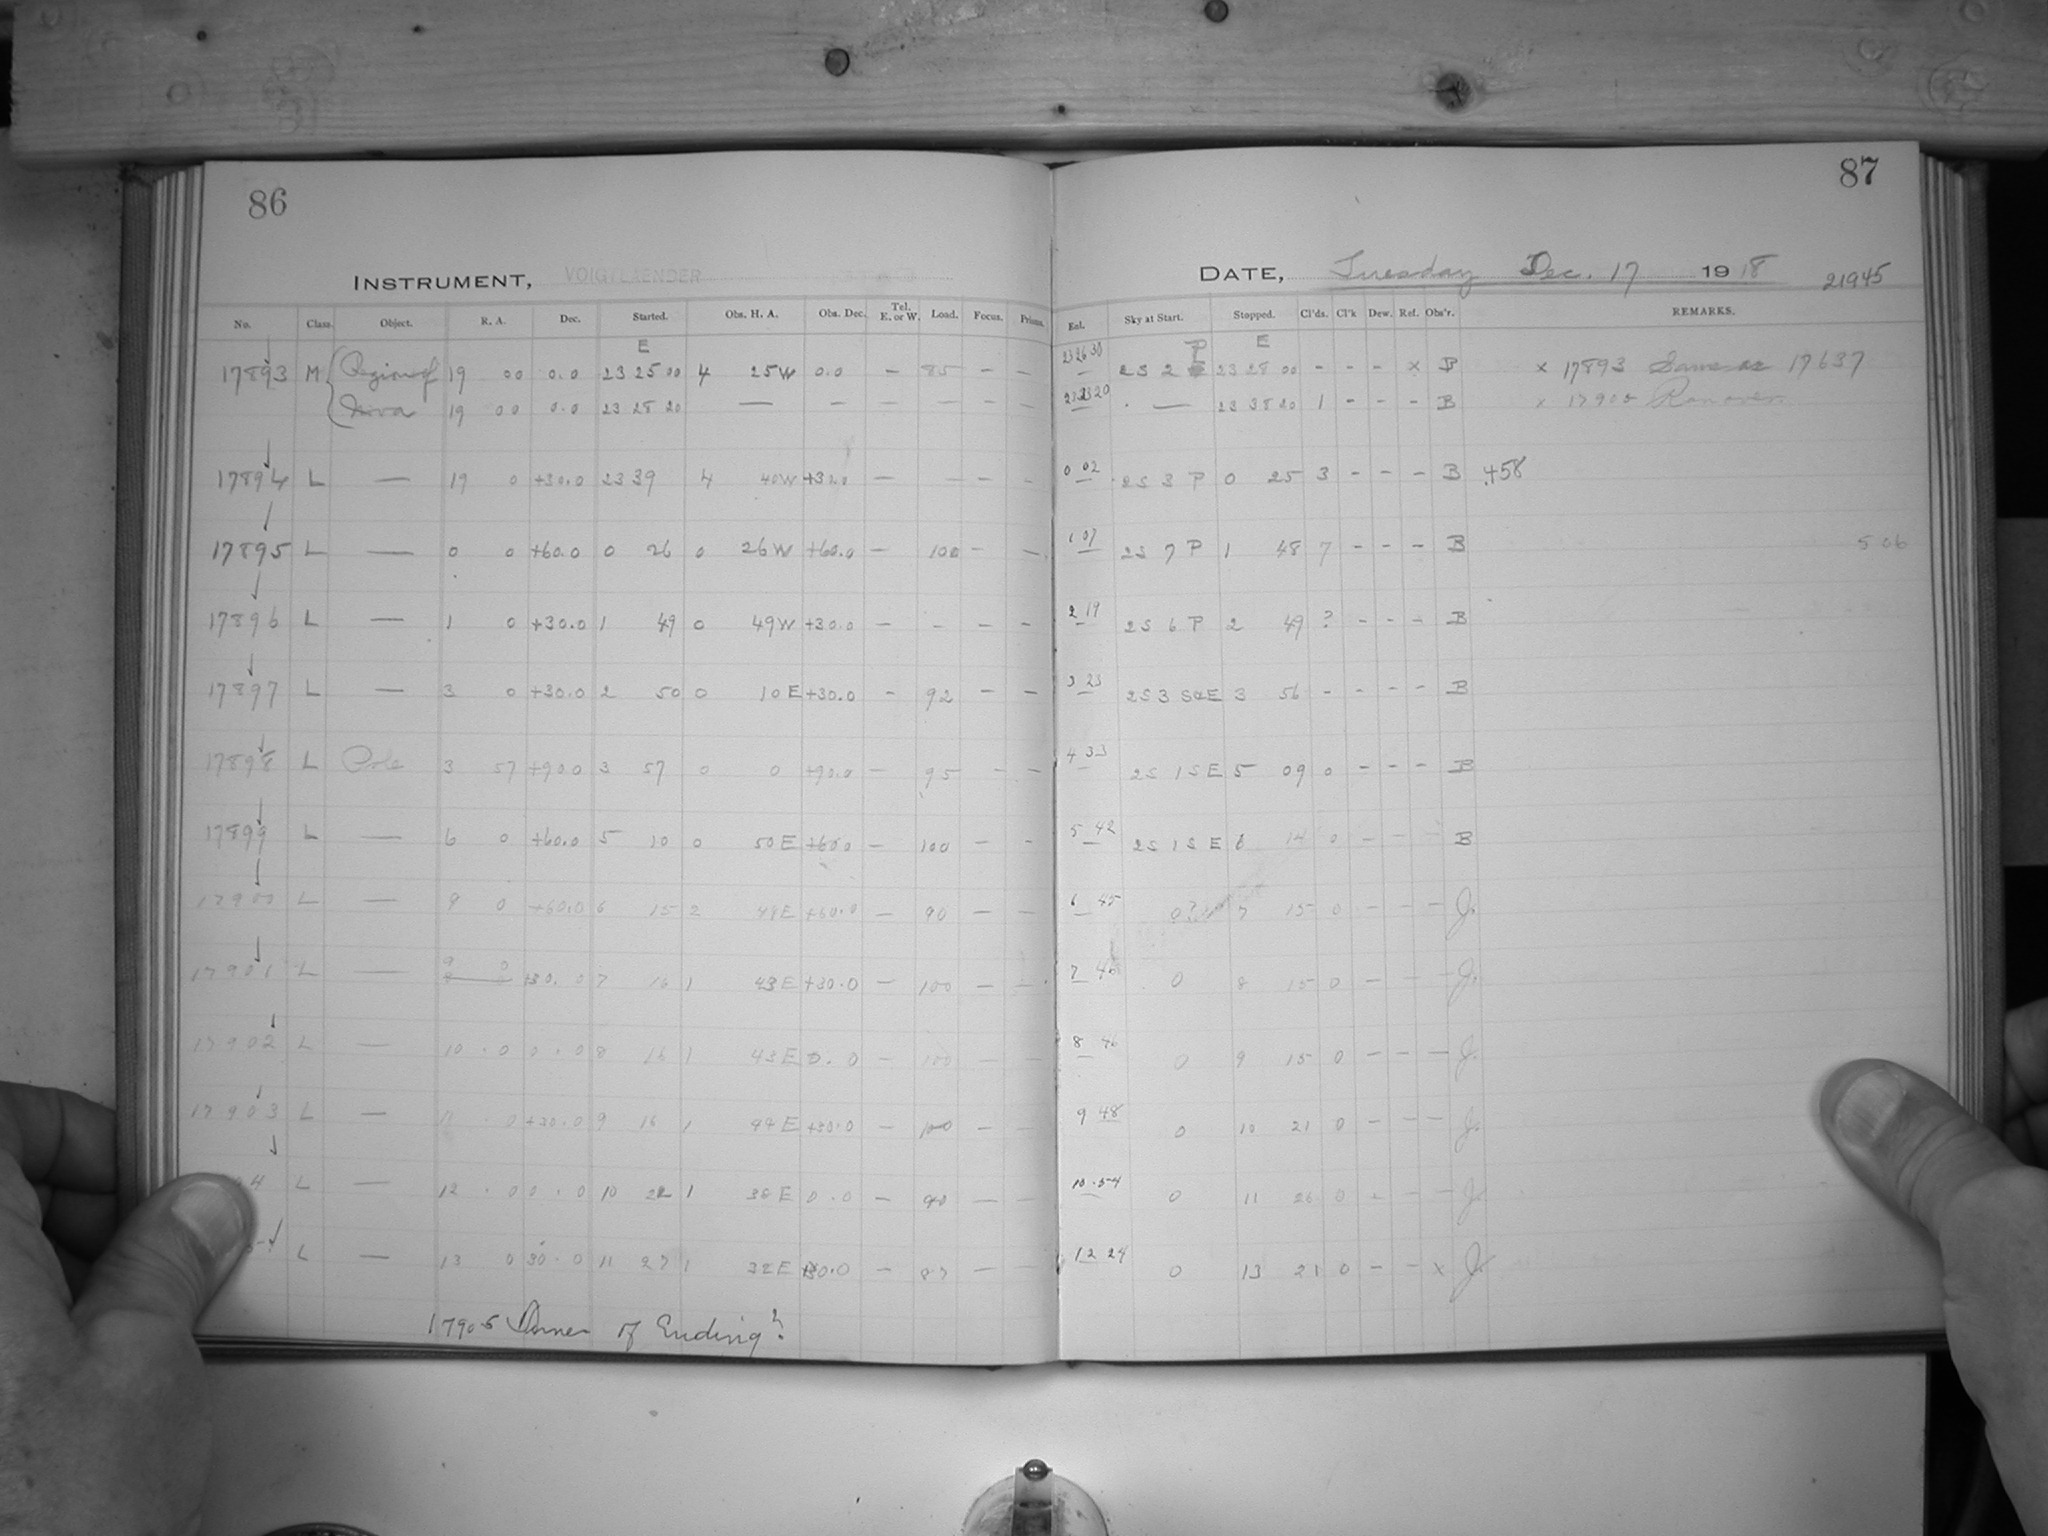 86
87
INSTRUMENT, VOIGTLAENDER
DATE, Tuesday Dec. 17 1918 21945
No. Class. Object. R. A. Dec. Started. Obs. H. A. Obs. Dec. Tel. E. or W. Load. Focus. Prism. Sky at Start. Stopped. Cl'ds. Cl'k Dew. Ref. Obs'r. REMARKS.
E E
17893 M Region of 19 00 0.0 23 25 00 4 25 W 0.0 — 85 — — 23 26 30 2S 2 P 23 28 00 - - - x B x 17893 Same as 17637
Nova 19 00 0.0 23 28 20 — — — — — — 23 38 20 1 - - - B x 17905 Ran over
17894 L — 19 0 +30.0 23 39 4 40 W — — — — 0 02 2S 3 P 0 25 3 - - - B +58
17895 L — 0 0 +60.0 0 26 0 26 W +60.0 — 100 — — 1 07 2S 7 P 1 48 7 - - - B 506
17896 L — 1 0 +30.0 1 49 0 49 W +30.0 — - - - 2 19 2S 6 P 2 49 ? - - - B
17897 L — 3 0 +30.0 2 50 0 10 E +30.0 - 92 - - 3 23 2S 3 S&E 3 56 - - - - B
17898 L Pole 3 57 +90.0 3 57 0 0 +90.0 — 95 - - 4 33 2S 1 S E 5 09 0 - - - B
17899 L — 6 0 +60.0 5 10 0 50 E +60.0 — 100 - - 5 42 2S 1 S E 6 14 0 - - - B
17900 L — 9 0 +60.0 6 15 2 44 E +60.0 — 90 — — 6 45 0? 7 15 0 - - - J.
17901 L — 9 0 +30.0 7 16 1 43 E +30.0 — 100 — — 7 46 0 8 15 0 - - - J.
17902 L — 10 . 0 0 . 0 8 16 1 43 E 0 . 0 — 100 — — 8 46 0 9 15 0 - - - J.
17903 L — 11 . 0 +30.0 9 16 1 44 E +30.0 — 100 — — 9 48 0 10 21 0 - - - J.
4 L — 12 . 0 0 . 0 10 22 1 38 E 0 . 0 — 90 — — 10.54 0 11 26 0 - - - J.
L — 13 0 30.0 11 27 1 32 E +30.0 — 87 — — 12 24 0 13 21 0 - - x J.
17905 of Ending?